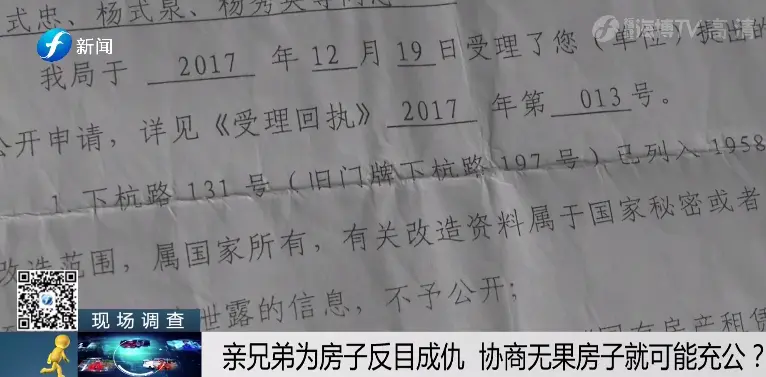 式忠、杨式泉、杨秀英等同志
新闻
海博TV高清
我局于 2017 年 12 月 19 日受理了您（单位）提出的
公开申请，详见《受理回执》 2017 年第 013 号。
1.下杭路 131 号（旧门牌下杭路 197 号）已列入 1958
改造范围，属国家所有，有关改造资料属于国家秘密或者
泄露的信息，不予公开；
房产租赁
现场调查
亲兄弟为房子反目成仇 协商无果房子就可能充公？